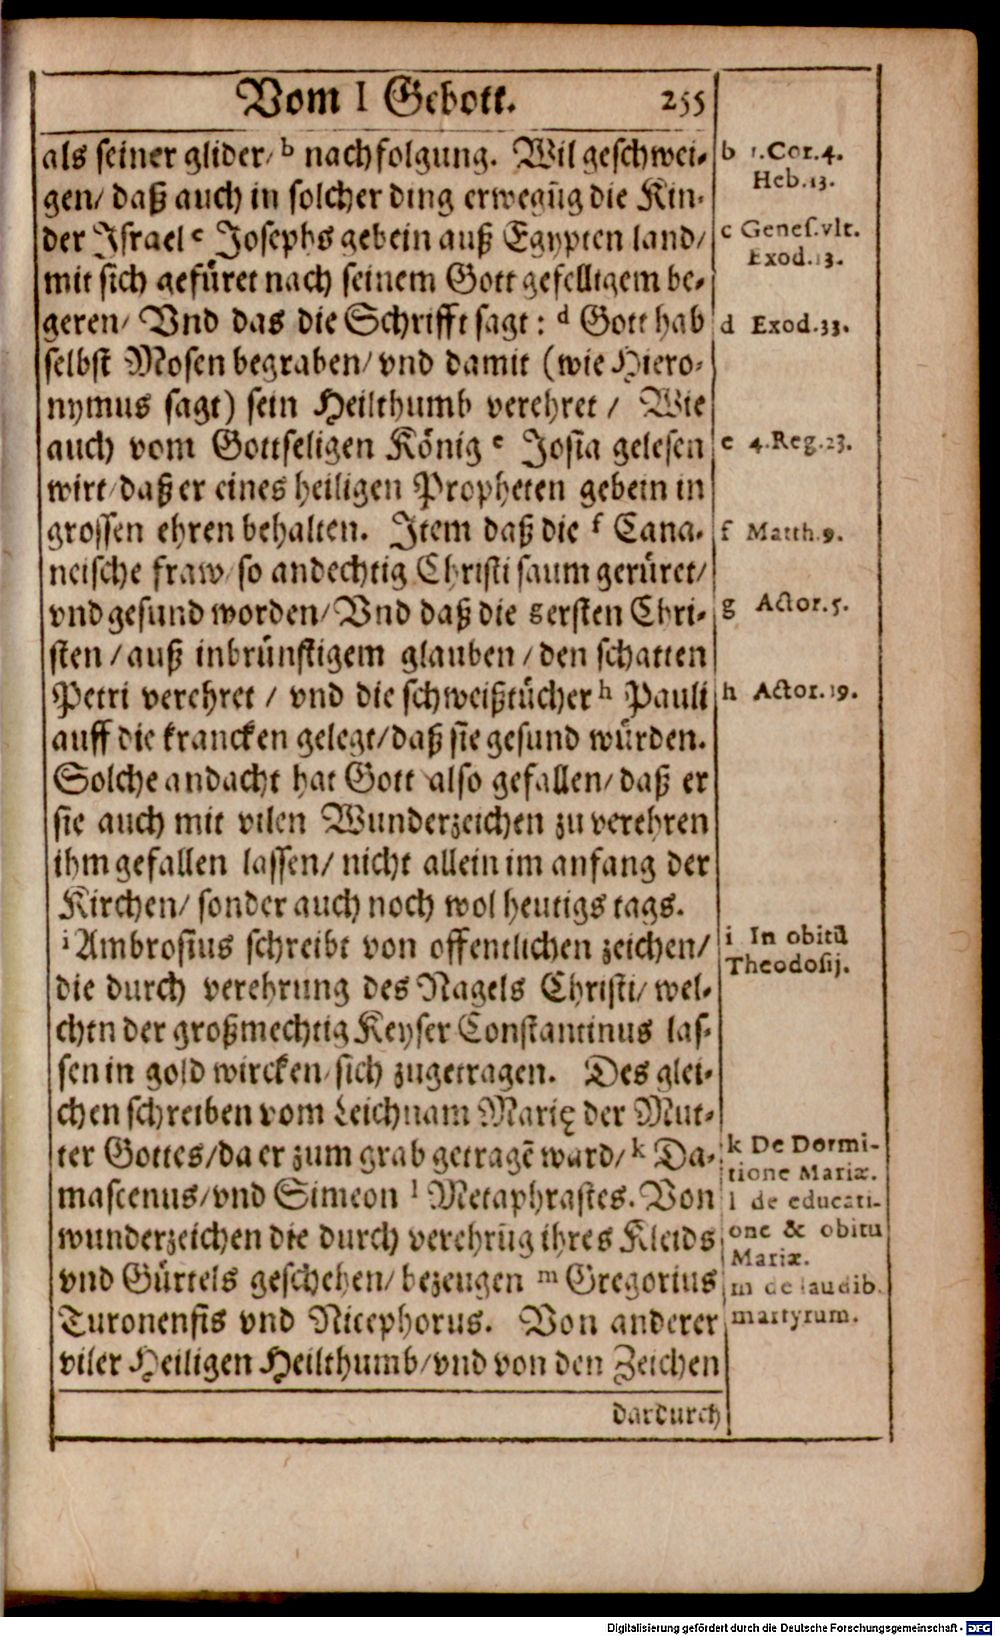 Vom I Gebott. 255
als seiner glider/ b nachfolgung. Wil geschwei-
gen/ daß auch in solcher ding erwegũg die Kin-
der Israel c Josephs gebein auß Egypten land/
mit sich gefüret nach seinem Gott gefelligem be-
geren/ Vnd das die Schrifft sagt: d Gott hab
selbst Mosen begraben/ vnd damit (wie Hiero-
nymus sagt) sein Heilthumb verehret / Wie
auch vom Gottseligen König e Josia gelesen
wirt/ daß er eines heiligen Propheten gebein in
grossen ehren behalten. Item daß die f Cana-
neische fraw/ so andechtig Christi saum gerüret/
vnd gesund worden/ Vnd daß die g ersten Chri-
sten / auß inbrünstigem glauben / den schatten
Petri verehret / vnd die schweißtücher h Pauli
auff die krancken gelegt/ daß sie gesund würden.
Solche andacht hat Gott also gefallen/ daß er
sie auch mit vilen Wunderzeichen zu verehren
ihm gefallen lassen/ nicht allein im anfang der
Kirchen/ sonder auch noch wol heutigs tags.
i Ambrosius schreibt von offentlichen zeichen/
die durch verehrung des Nagels Christi/ wel-
chen der großmechtig Keyser Constantinus las-
sen in gold wircken/ sich zugetragen. Des glei-
chen schreiben vom Leichnam Marię der Mut-
ter Gottes/ da er zum grab getragẽ ward/ k Da-
mascenus/ vnd Simeon l Metaphrastes. Von
wunderzeichen die durch verehrũg ihres Kleids
vnd Gürtels geschehen/ bezeugen m Gregorius
Turonensis vnd Nicephorus. Von anderer
viler Heiligen Heilthumb/ vnd von den Zeichen
dardurch
b 1.Cor.4.
Heb.13.
c Genes.vlt.
Exod.13.
d Exod.33.
e 4.Reg.23.
f Matth.9.
g Actor.5.
h Actor.19.
i In obitũ
Theodosij.
k De Dormi-
tione Mariæ.
l de educati-
one & obitu
Mariæ.
m de laudib.
martyrum.
Digitalisierung gefördert durch die Deutsche Forschungsgemeinschaft - DFG